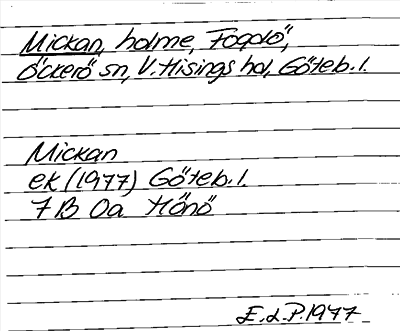 Mickan, holme, Fogdö,
Öckerö sn, V. Hisings hd, Göteb. l.
Mickan
ek (1977) Göteb. l.
7 B 0a Hönö
E.L.P. 1977